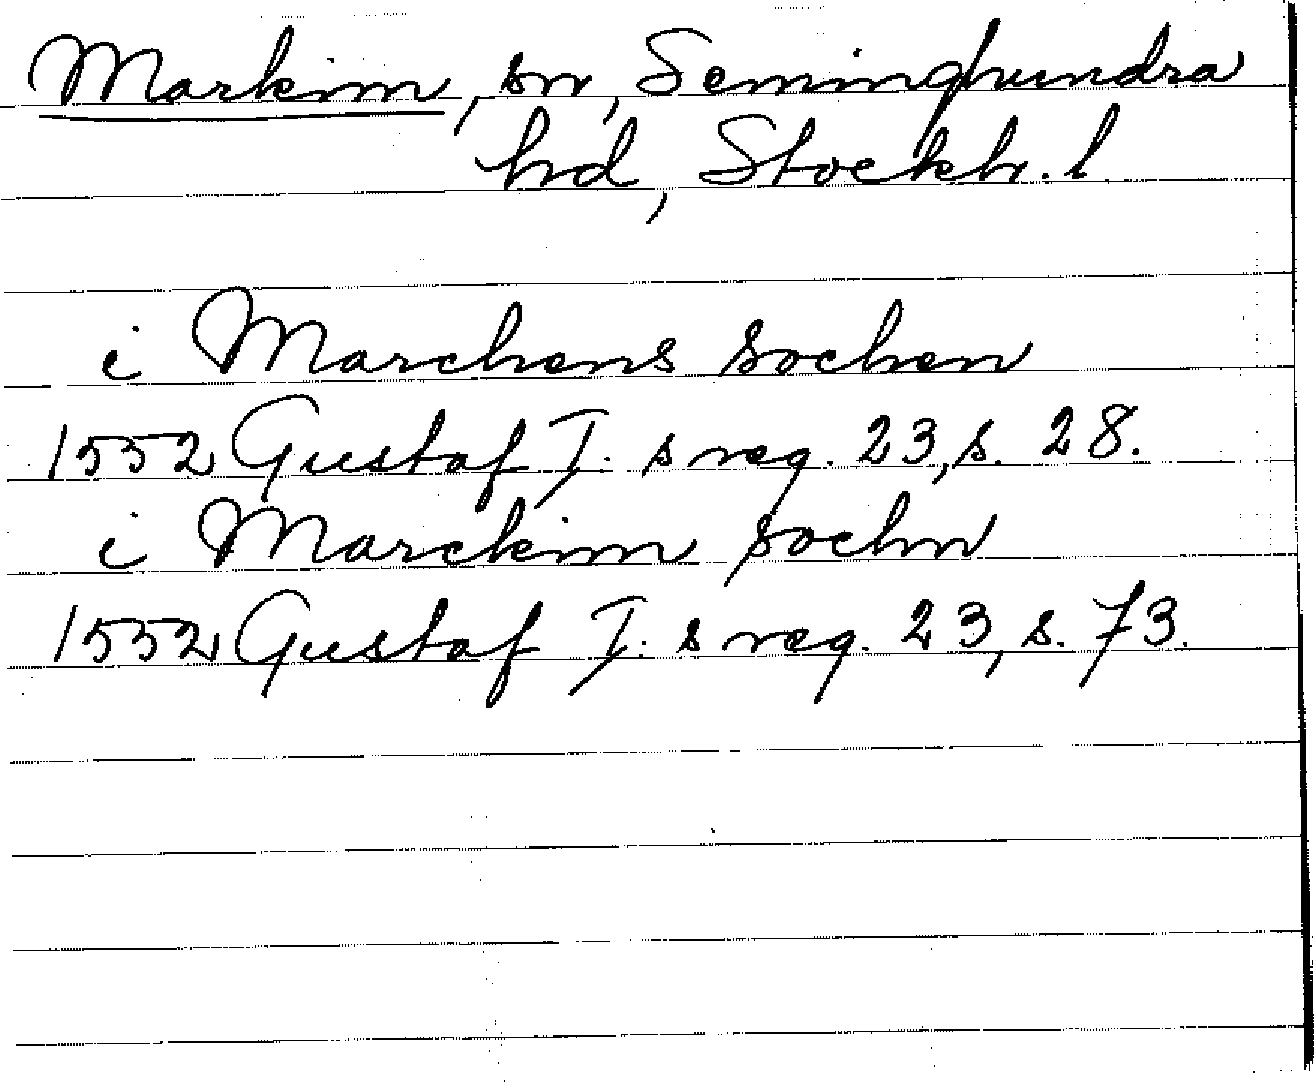 Markim, sn, Seminghundra
hd, Stockh. l.
i Marchens sochen
1552 Gustaf I:s reg. 23, s. 28.
i Marckim sochn
1552 Gustaf I:s reg. 23, s. 73.